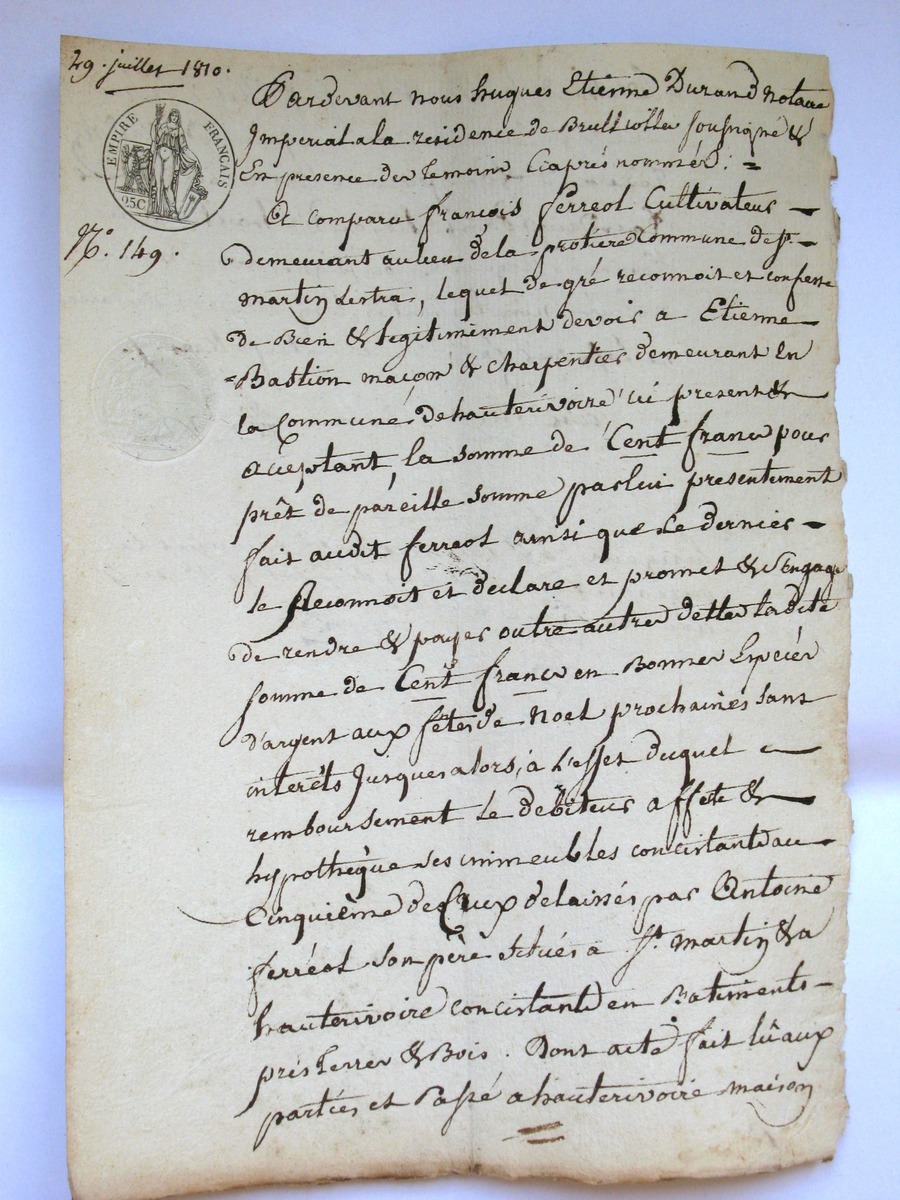 29. juillet 1810.
EMPIRE FRANÇAIS
25C
N.° 149.
Pardevant nous hugues Etienne Durand Notaire
Imperial a la residence de Brulliolle soussigné &
En presence des temoins Ciaprés nommés : =
A comparu françois ferreol Cultivateur —
demeurant au lieu de la protiere Commune de St. —
martin Lestra, lequel de gré reconnoit et confesse
de Bien & legitimement devoir a Etienne —
=Bastion maçon & charpentier demeurant En
la Commune de hauterivoire ici present &
acceptant la somme de Cent francs pour
prêt de pareille somme par lui presentement
fait audit ferreol ainsi que Ce dernier —
le Reconnoit et declare et promet & S'engage
de rendre & payer outre autres dettes ladite
somme de Cent francs en Bonnes Especes
d'argent aux fêtes de Noel prochaines sans
interêts Jusques alors, à L'effet duquel —
remboursement Le debiteur affete &
hypothèque ses immeubles concistants au —
Cinquième de Ceux delaissés par Antoine
ferréol son père situés a St. martin & a
hauterivoire concistants en Batiments —
prés terres & Bois. Dont acte fait lû aux
parties et Passé a hauterivoire maison